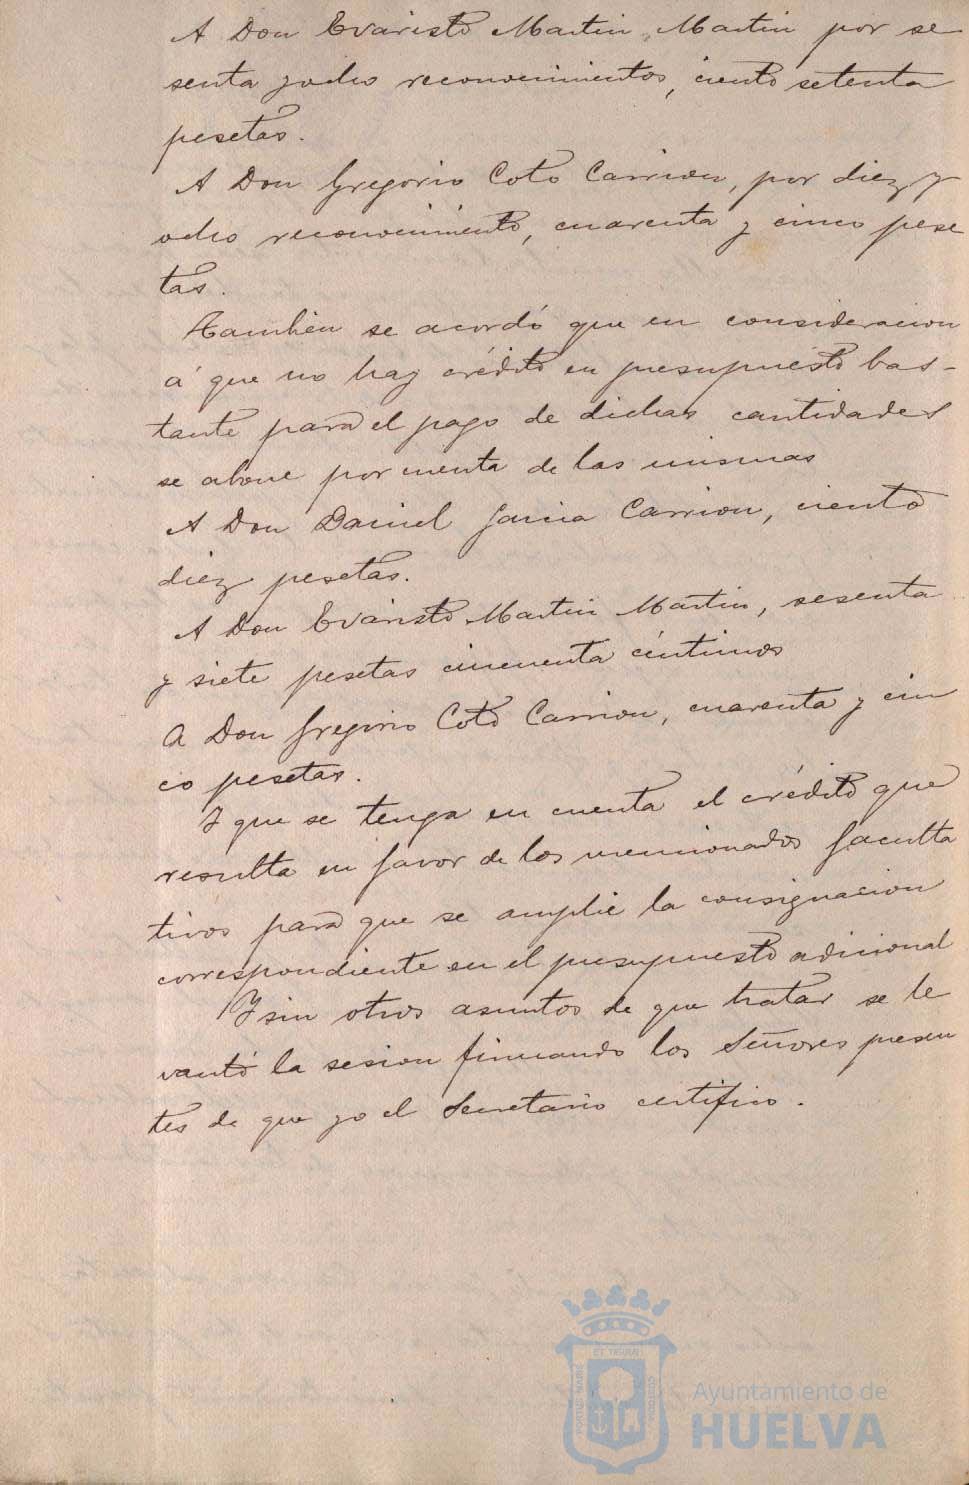 A Don Evaristo Martin Martin por se
senta y ocho reconocimientos, ciento setenta
pesetas.
A Don Gregorio Coto Carrion, por diez y
ocho reconocimiento, cuarenta y cinco pese
tas.
Tambien se acordó que en consideracion
á que no hay crédito en presupuesto bas-
tante para el pago de dichas cantidades
se abone por cuenta de las mismas
A Don Daniel Garcia Carrion, ciento
diez pesetas.
A Don Evaristo Martin Martin, sesenta
y siete pesetas cincuenta céntimos
A Don Gregorio Coto Carrion, cuarenta y cin
co pesetas.
Y que se tenga en cuenta el crédito que
resulta en favor de los mencionados faculta
tivos para que se amplie la consignacion
correspondiente en el presupuesto adicional
Y sin otros asuntos de que tratar se le
vantó la sesion firmando los Señores presen
tes de que yo el Secretario certifico.
Ayuntamiento de
HUELVA